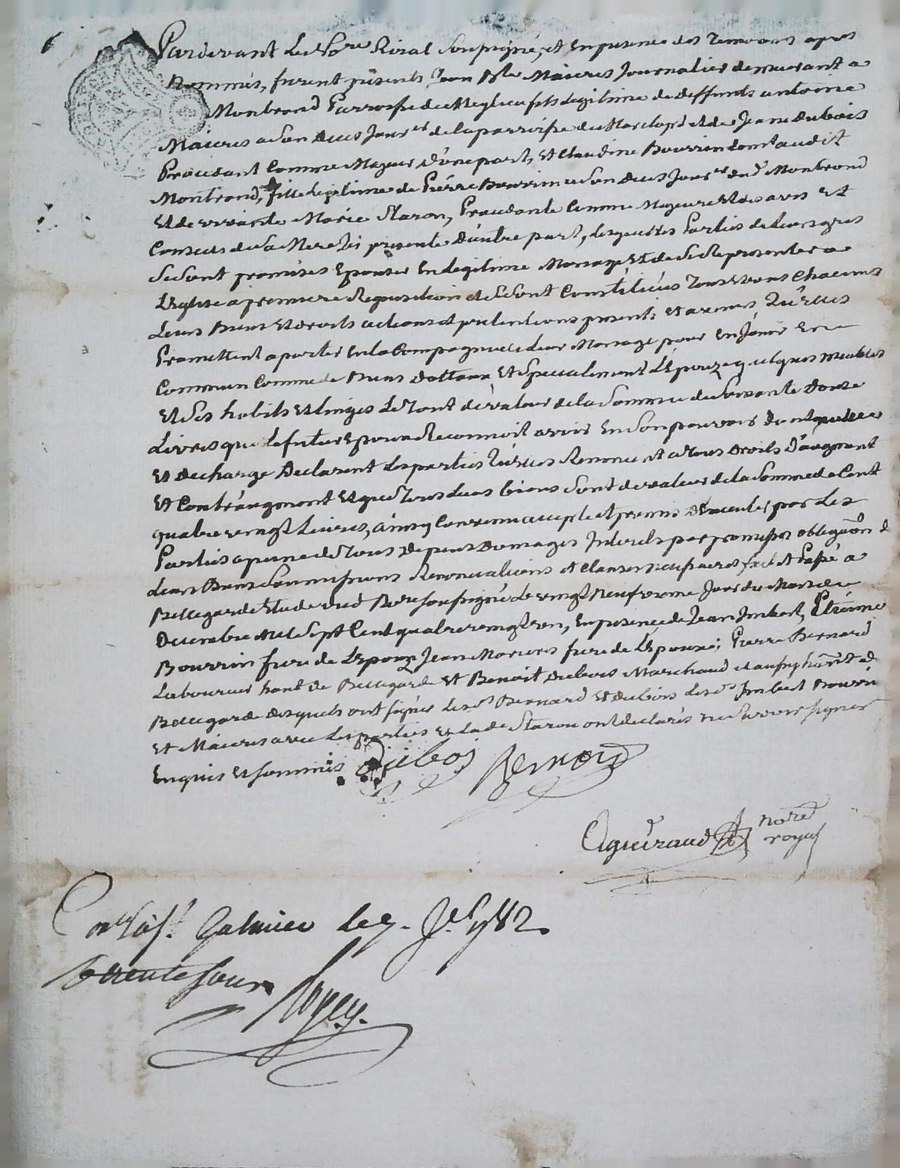 Pardevant le No.re Royal Soussigné, et en presence des Temoins apres
Nommés, furent présents Jean B.te Maieres Journalier demeurant a
Montbrand Parroisse de fils Legitime de deffunts antoine
Maieres a Son Jour.er de la parroisse du et de Jeane Dubois
Procedant Comme Majeur d'une part, et Claudine Bourrin audit
Montbrand, fille Legitime de Pierre Bourrin Jour.er dud. Montbrand
Et de vivante Marie Staron, Procedante Comme Majeure et de avis Et
Conseil de Sa Mere Ici presente d'autre part, Lesquelles Parties de Leurs grés
Se Sont promises Epouser En Legitime Mariage Et de Se Representer a
L'Eglise a premiere Requisition et Se Sont Constitués Tous et uns Chacuns
Leurs Biens Et droits actions et pretentions presents et avenir Qu'elles
Promettent aporter en la Compagnie de Leur Mariage pour En Jouir En
Commun Comme de Biens Dottaux Et Specialement L'Epouze quelques meubles
Et Ses habits et Linges Le Tout de valeur de la Somme de Soixante Douze
Livres que Le futur Epoux Reconnoit avoir En Son pouvoir dont quitte
Et decharge Declarent Les parties qu'elles Renoncent a Tous Droits D'augment
Et Contraugment Et que Tous Leurs biens Sont de valeur de la Somme de Cent
quatre vingt Livres, ainsy Convenu accepté et promis Executer par Les
Parties a peine de Tous Depens Domages Interets par obligaôn de
Leurs Biens Soumissions Renonciations et Clauses fait et Passé a
Bellegarde Etude dud. No.re Soussigné Le vingt Neufvieme Jour du Mois de
Decembre Mil Sept Cent quatre vingt un, En presence de Jean Imbert, Etienne
Bourrin frere de L'epouze Jean Maieres frere de L'epoux, Pierre Bernard
Laboureur de Bellegarde Et Benoit Dubois Marchand
Bellegarde desquels ont Signé Les S.rs Bernard Et dubois Les S.rs Imbert Bourrin
Et Maieres avec Les parties Et Lade Staron ont declarés ne Scavoir Signer
Enquis Et Sommés Dubois Bernard
Aguiraud No.re royal
Con.lé a S.t Galmier le 7. J.er 1782.
trente Sous